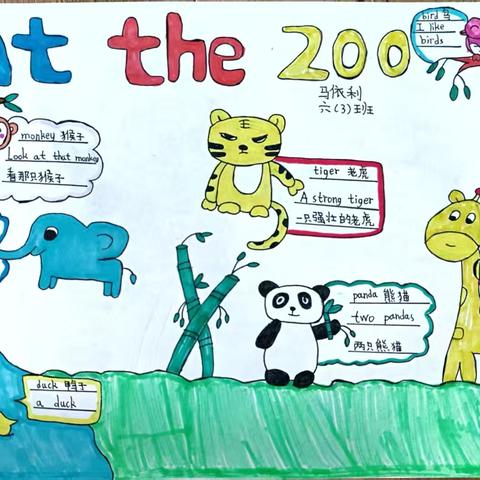 At the zoo
马依利
六(3)班
bird 鸟
I like
birds
monkey 猴子
Look at that monkey
看那只猴子
tiger 老虎
A strong tiger
一只强壮的老虎
panda 熊猫
two pandas
两只熊猫
duck 鸭子
a duck